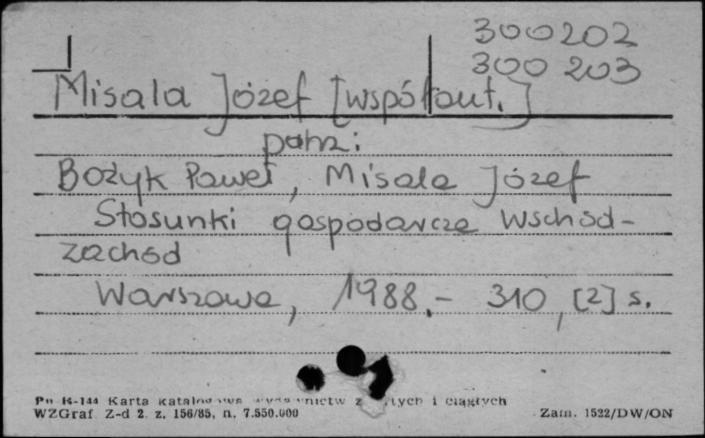 300202
300 203
Misala Józef [współaut.]
patrz:
Bożyk Paweł, Misala Józef
Stosunki gospodarcze Wschód-
zachód
Warszawa, 1988.- 310, [2] s.
Pu K-144 Karta katalogowa wydawnictw z i ciągłych
WZGraf. Z-d 2. z. 156/85, n. 7.550.000 Zam. 1522/DW/ON